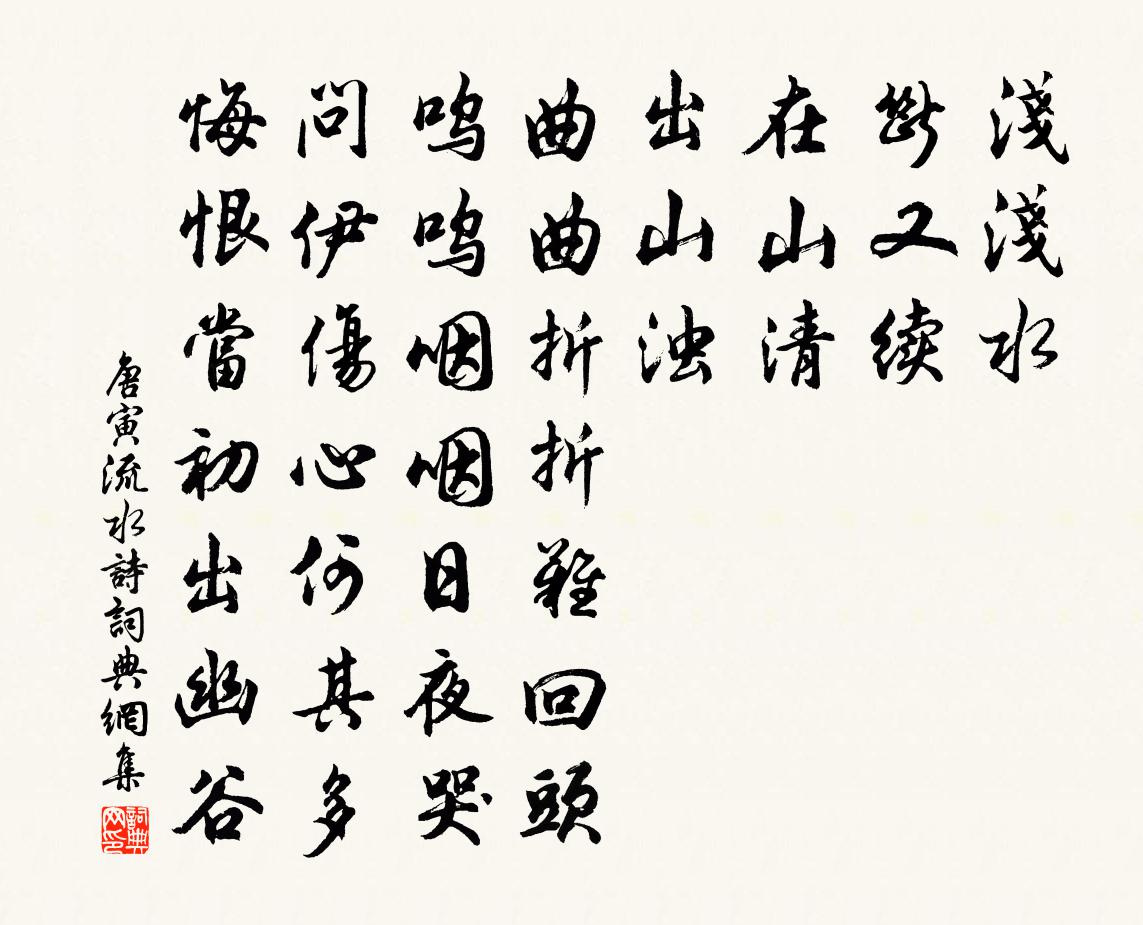 淺淺水
斷又续
在山清
出山浊
曲曲折折難回頭
呜呜咽咽日夜哭
問伊傷心何其多
悔恨當初出幽谷
唐寅流水詩詞典網集
詞典网印